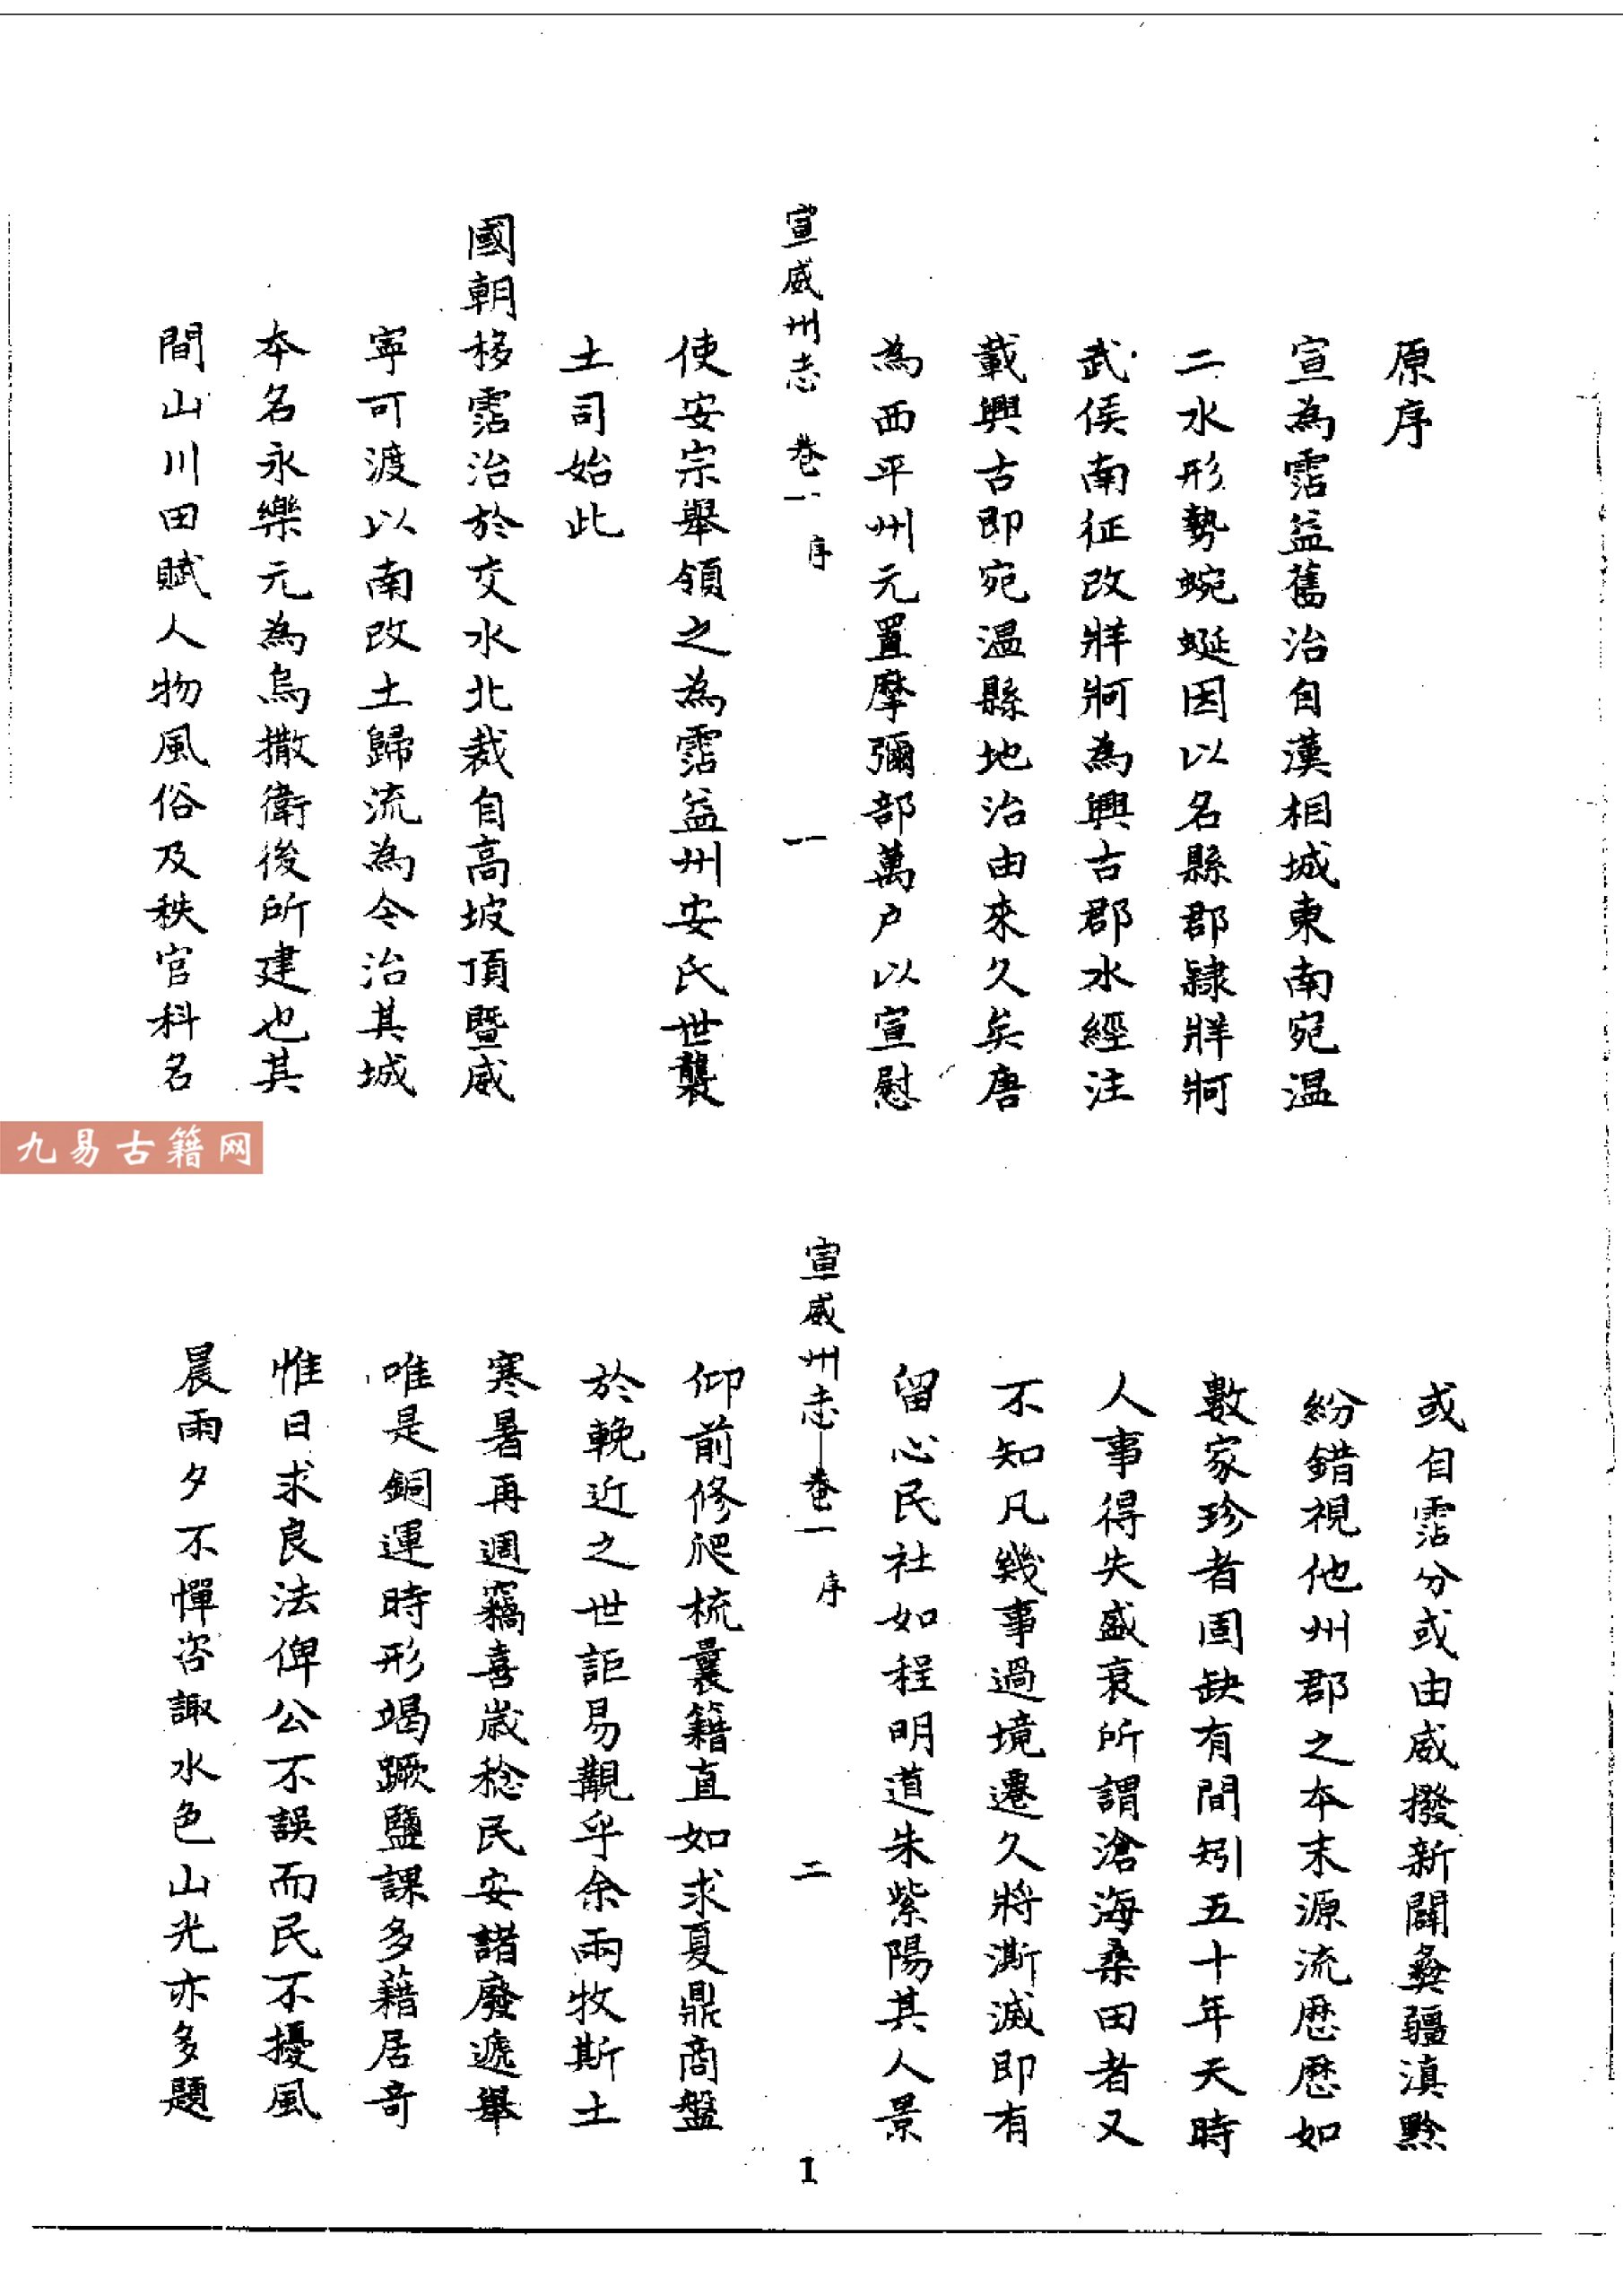 原序
宣為霑益舊治自漢相城東南宛温
二水形勢蜿蜒因以名縣郡隸牂牁
武侯南征改牂牁為興古郡水經注
載興古即宛温縣地治由來久矣唐
為西平州元置摩彌部萬户以宣慰
宣威州志 卷一 序 一
使安宗舉領之為霑益州安氏世襲
土司始此
國朝移霑治於交水北裁自高坡頂暨威
寧可渡以南改土歸流為今治其城
本名永樂元為烏撒衛後所建也其
間山川田賦人物風俗及秩官科名
九易古籍网
或自霑分或由威撥新闢彝疆滇黔
紛錯視他州郡之本末源流歷歷如
數家珍者固缺有間矧五十年天時
人事得失盛衰所謂滄海桑田者又
不知凡幾事過境遷久將澌滅即有
留心民社如程明道朱紫陽其人景
宣威州志 卷一 序 二
仰前修爬梳曩籍直如求夏鼎商盤
於輓近之世詎易觀乎余兩牧斯土
寒暑再週竊喜歲稔民安諸廢遞舉
唯是銅運時形竭蹶鹽課多藉居奇
惟日求良法俾公不誤而民不擾風
晨雨夕不憚咨諏水色山光亦多題
1